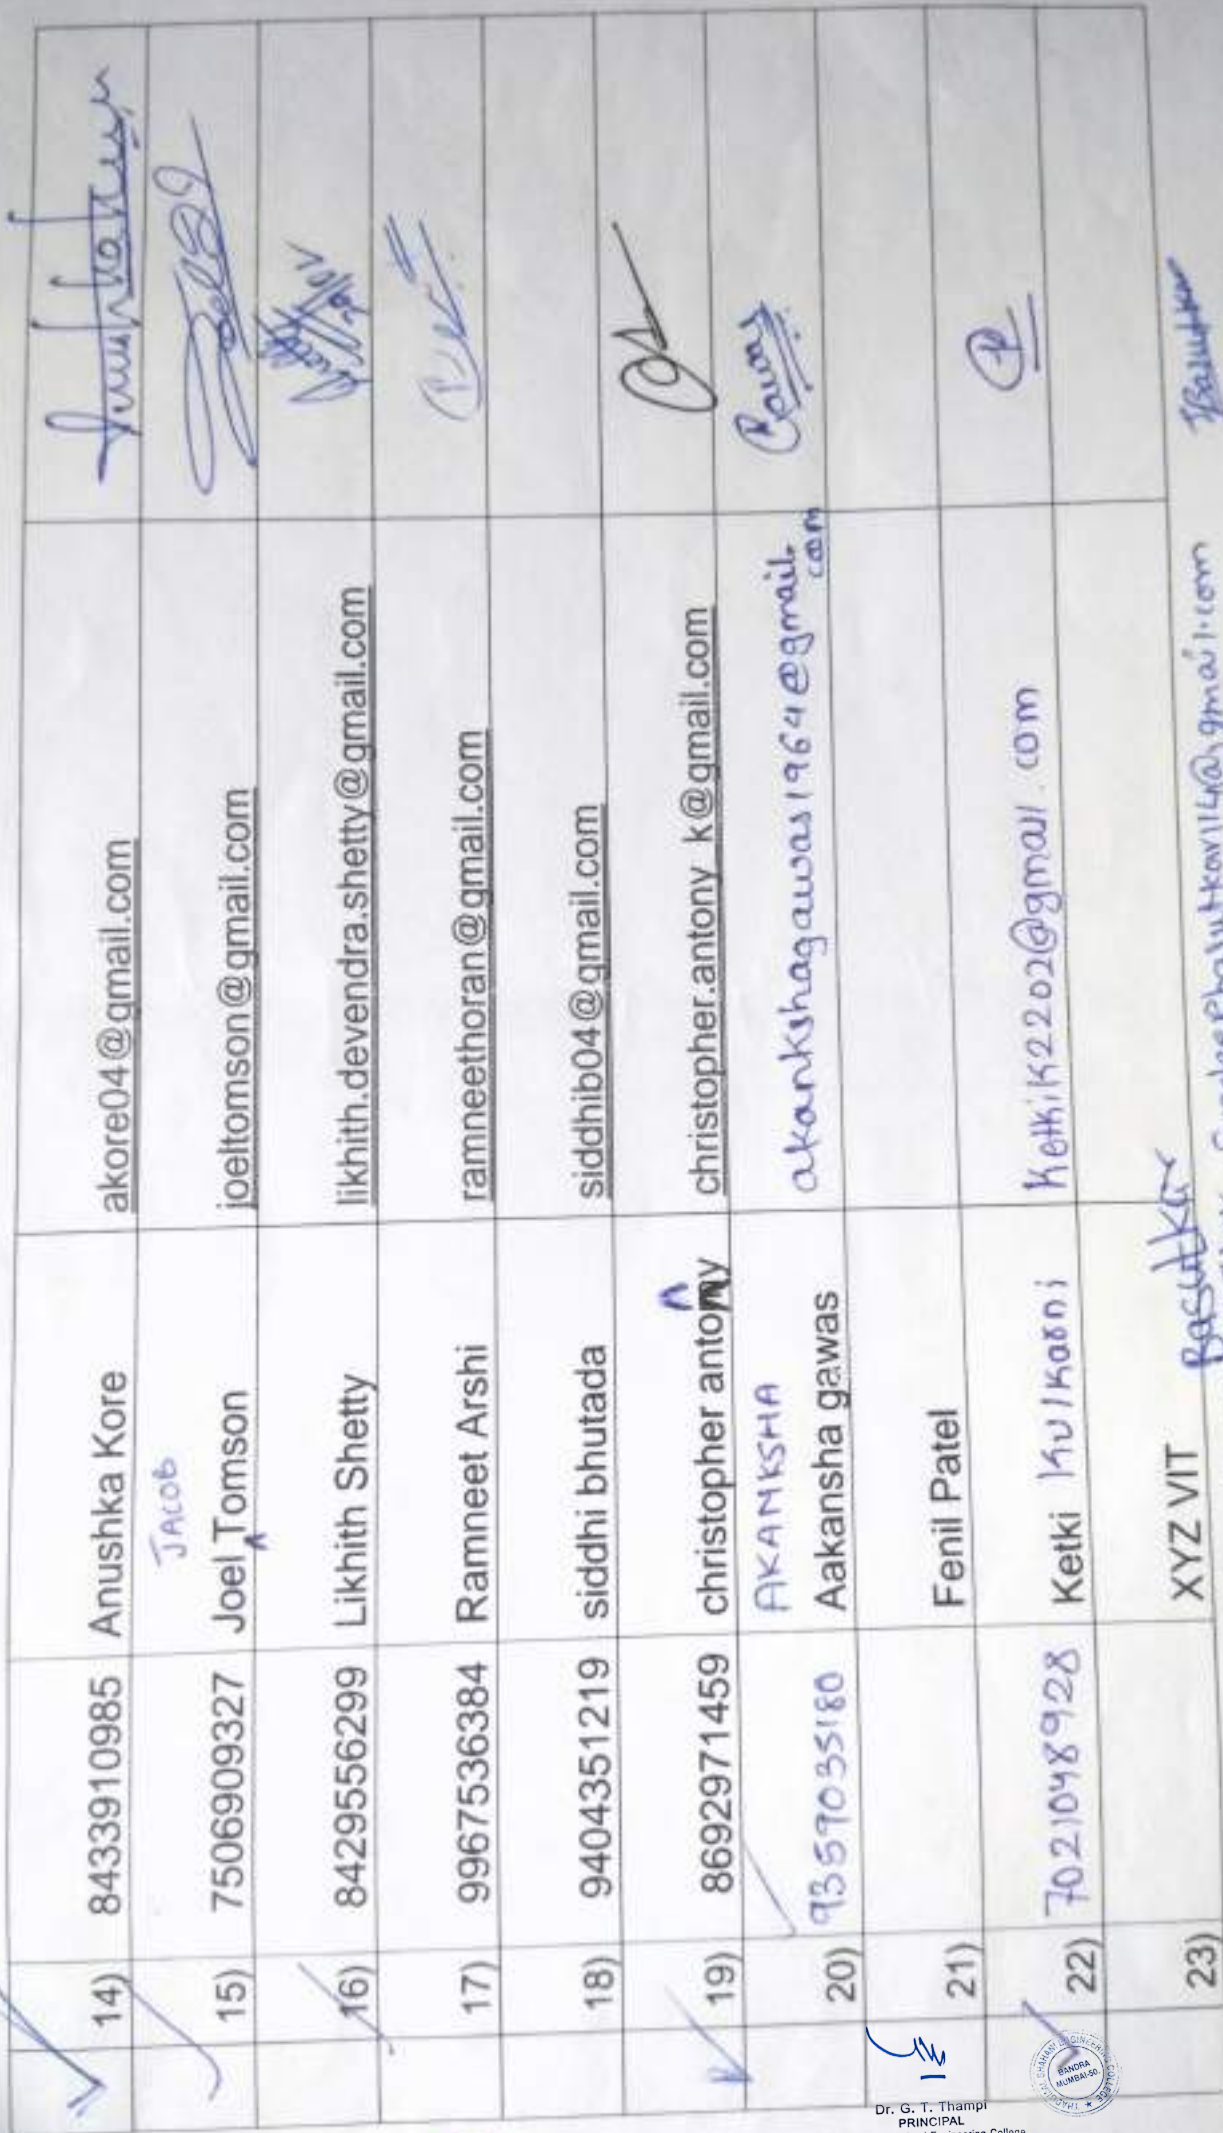 14) 8433910985 Anushka Kore akore04@gmail.com
JACOB
15) 7506909327 Joel Tomson joeltomson@gmail.com
16) 8429556299 Likhith Shetty likhith.devendra.shetty@gmail.com
17) 9967536384 Ramneet Arshi ramneethoran@gmail.com
18) 9404351219 siddhi bhutada siddhib04@gmail.com
19) 8692971459 christopher antony christopher.antony k@gmail.com
AKANKSHA
20) 93597035180 Aakansha gawas akankshagawas1964@gmail.
com
21) Fenil Patel
22) 7021048928 Ketki Kulkarni Ketkik2202@gmail.com
23) XYZ VIT
Dr. G. T. Thampi
PRINCIPAL
BANDRA
MUMBAI-50.